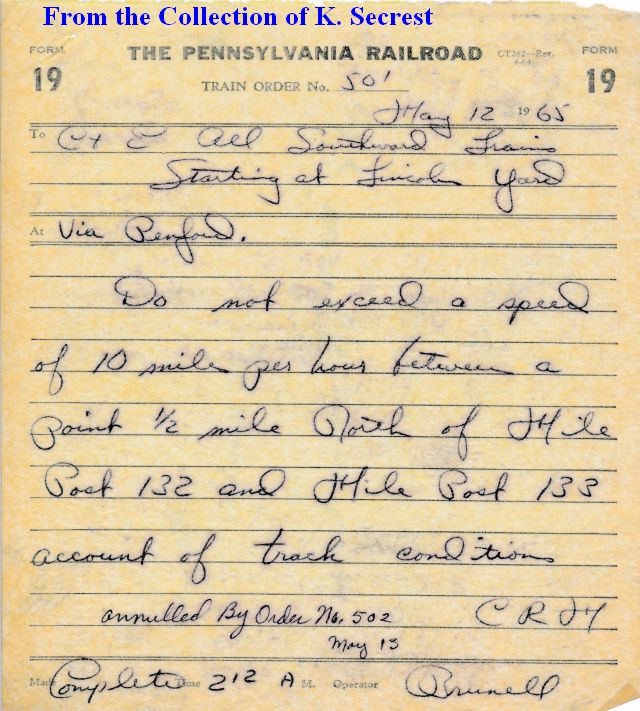 From the Collection of K. Secrest
FORM 19
THE PENNSYLVANIA RAILROAD
CT262—Rev. 4-64
FORM 19
TRAIN ORDER No. 501
May 12 1965
To C+E All Southward Trains
Starting at Lincoln Yard
At Via Renford.
Do not exceed a speed
of 10 mile per hour between a
point 1/2 mile North of Mile
Post 132 and Mile Post 133
account of track conditions
annulled By Order No. 502 C R M
May 13
Made Complete Time 212 A M. Operator Brunell